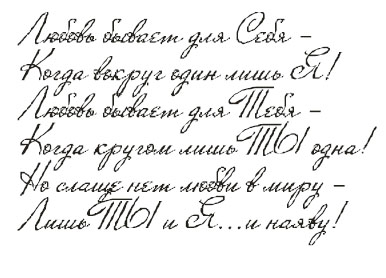 Любовь бывает для Себя –
Когда вокруг один лишь Я!
Любовь бывает для Тебя –
Когда кругом лишь ТЫ одна!
Но слаще нет любви в миру –
Лишь ТЫ и Я...и наяву!